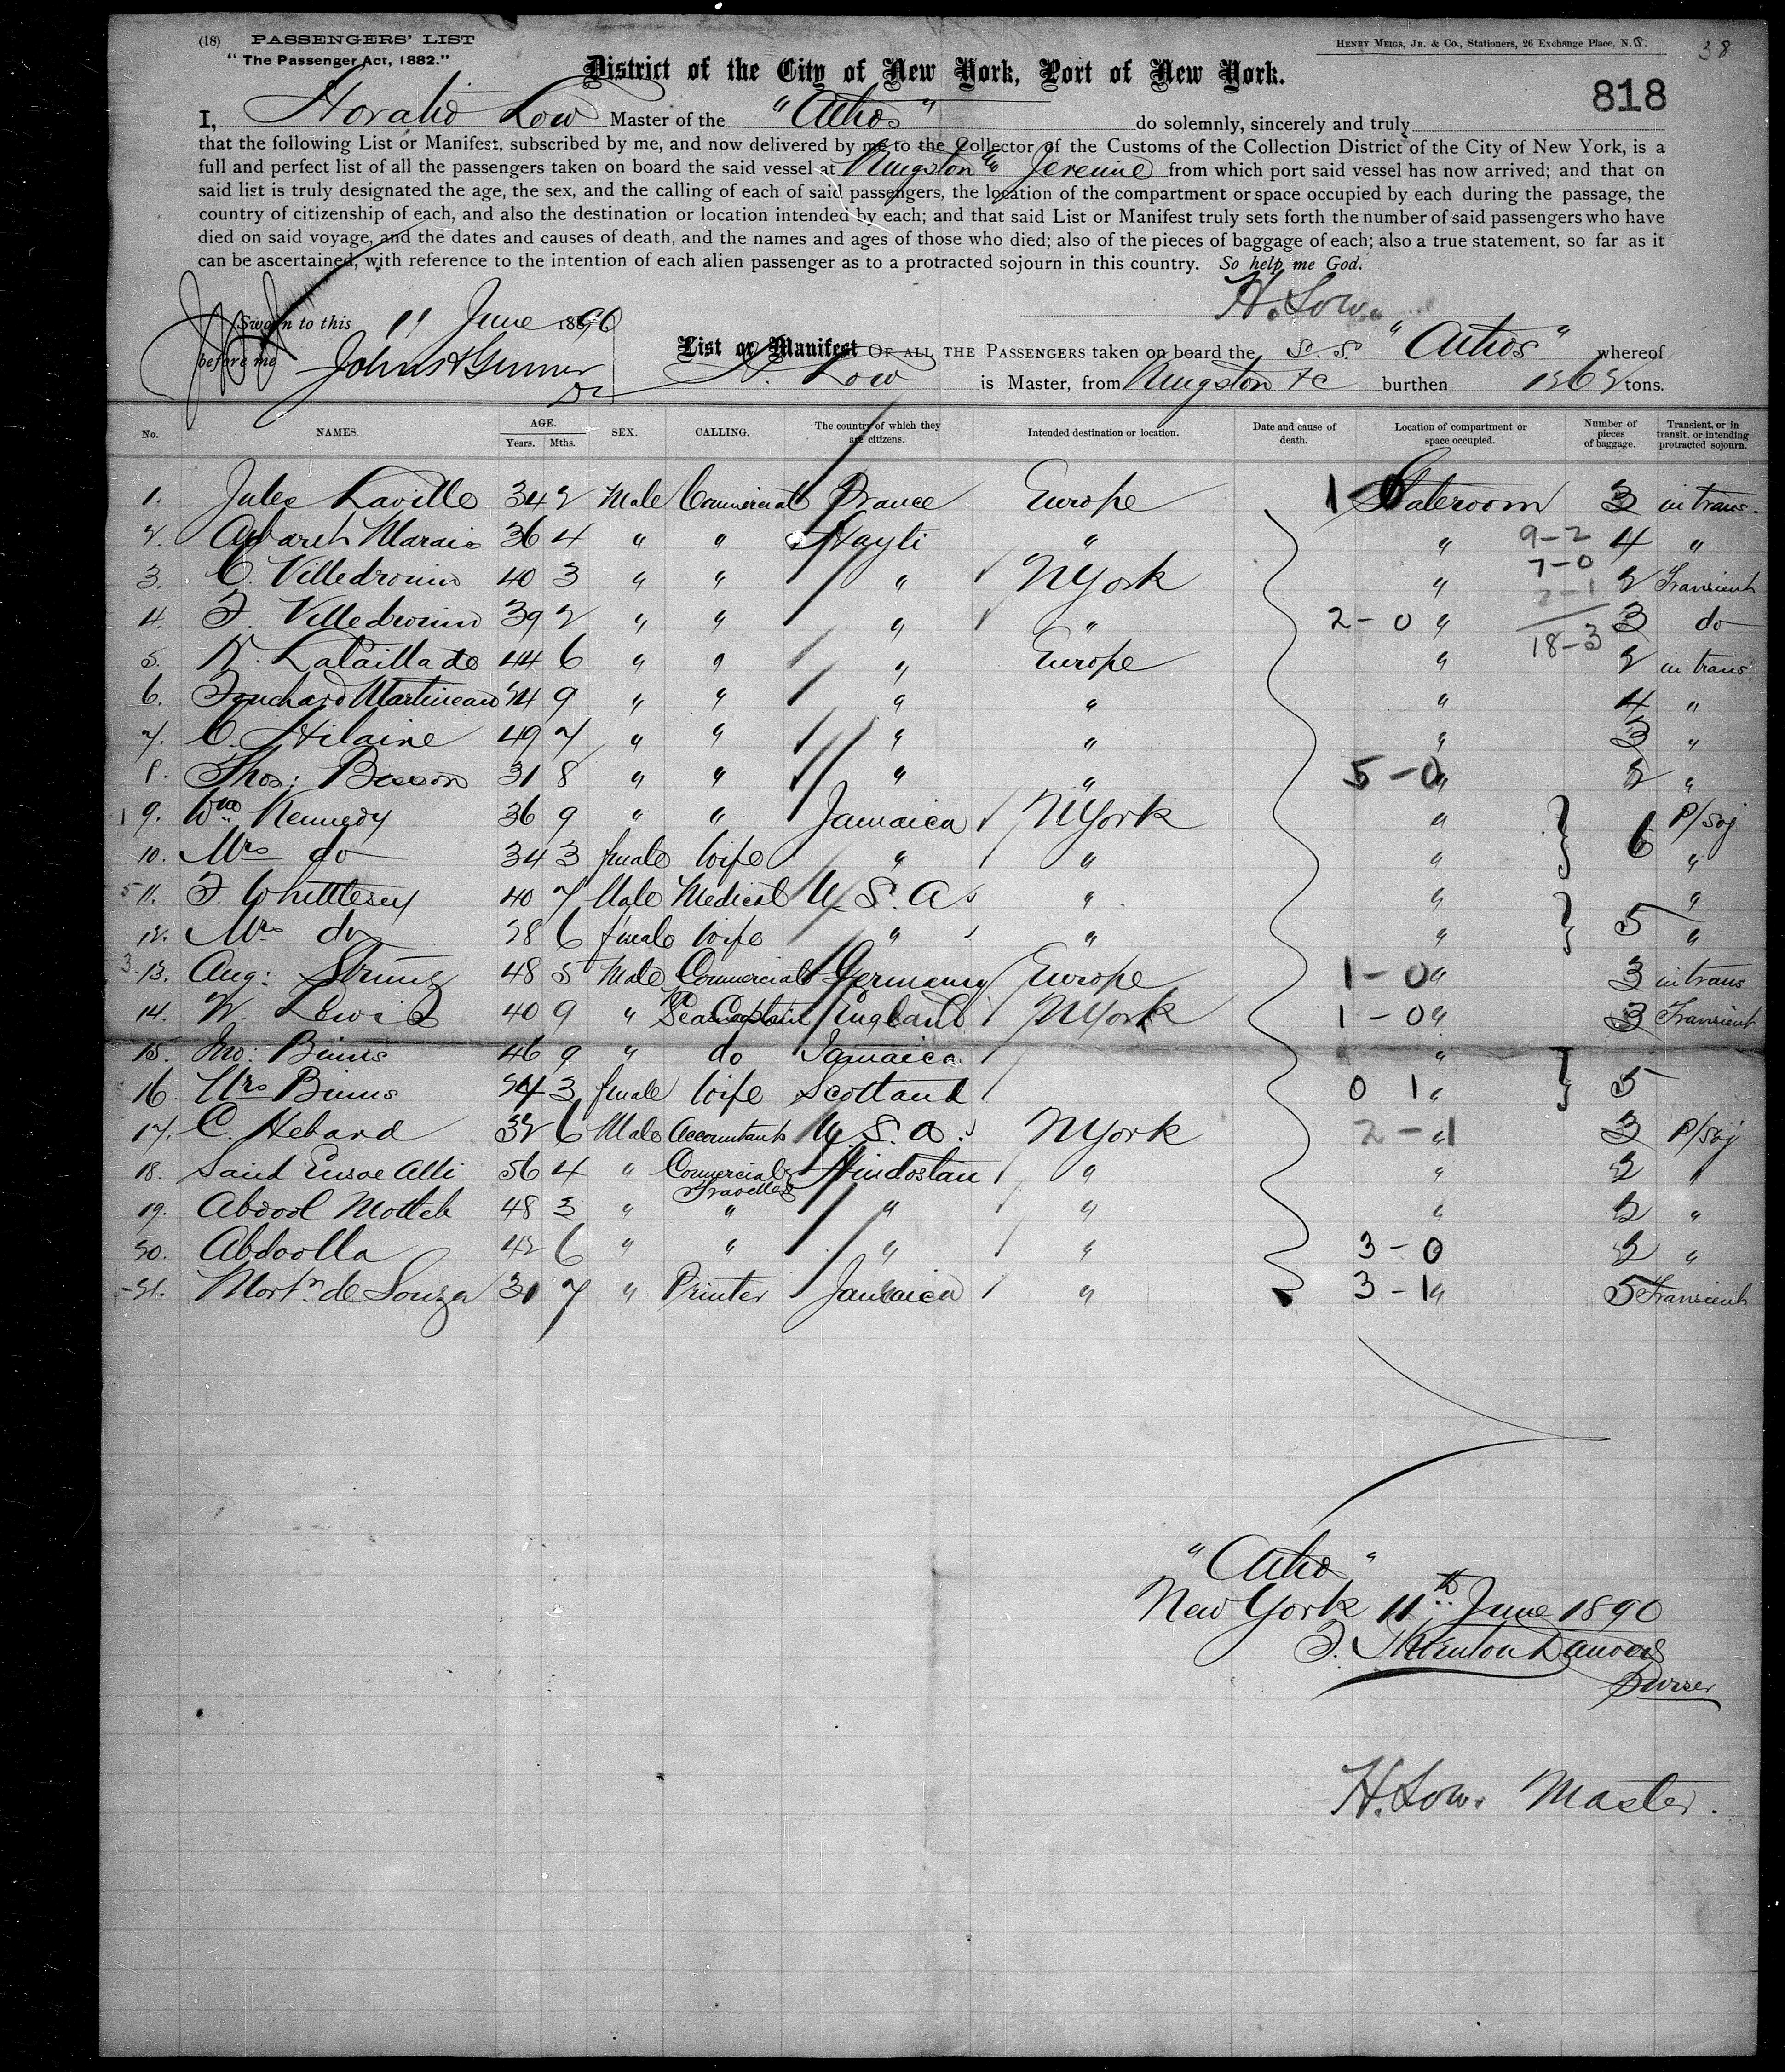 (18) PASSENGERS' LIST
"The Passenger Act, 1882."
HENRY MEIGS, JR. & Co., Stationers, 26 Exchange Place, N.Y.
38
District of the City of New York, Port of New York.
818
I, Horatio Low Master of the "Athos" do solemnly, sincerely and truly
that the following List or Manifest, subscribed by me, and now delivered by me to the Collector of the Customs of the Collection District of the City of New York, is a
full and perfect list of all the passengers taken on board the said vessel at Kingston Jeremie from which port said vessel has now arrived; and that on
said list is truly designated the age, the sex, and the calling of each of said passengers, the location of the compartment or space occupied by each during the passage, the
country of citizenship of each, and also the destination or location intended by each; and that said List or Manifest truly sets forth the number of said passengers who have
died on said voyage, and the dates and causes of death, and the names and ages of those who died; also of the pieces of baggage of each; also a true statement, so far as it
can be ascertained, with reference to the intention of each alien passenger as to a protracted sojourn in this country. So help me God.
H. Low.
Sworn to this 11 June 1890
before me
List or Manifest OF ALL THE PASSENGERS taken on board the S.S. "Athos" whereof
H. Low is Master, from Kingston &c burthen tons.
No. NAMES. AGE. Years. Mths. SEX. CALLING. The country of which they are citizens. Intended destination or location. Date and cause of death. Location of compartment or space occupied. Number of pieces of baggage. Transient, or in transit, or intending protracted sojourn.
1. Jules Laville 34 2 Male Commercial France Europe 1-0 Stateroom 3 in trans.
2. Marais 36 4 " " Hayti " " 9-2 4 "
3. C. Villedrouin 40 3 " " " NYork " 7-0 2 Transient
2-1
4. F. Villedrouin 39 2 " " " " 2-0 " 3 do
18-3
5. 44 6 " " " Europe " 2 in trans.
6. Martineau 24 9 " " " " " 4 "
7. C. Hilaire 49 7 " " " " " 3 "
8. Thos: 31 8 " " " " 5-0 " 2 "
9. Wm. Kennedy 36 9 " " Jamaica NYork " 6 P/Soj
10. Mrs do 34 3 female Wife " " " "
11. F. Whittlesey 40 7 Male Medical U.S.A. " " 5 "
12. Mrs do 28 6 female Wife " " " "
13. Aug: 48 5 Male Commercial Germany Europe 1-0 " 3 in trans
14. W. Lewis 40 9 " Sea Captain England NYork 1-0 " 3 Transient
15. Jno: Binns 46 9 " do Jamaica " 5
16. Mrs Binns 24 3 female Wife Scotland 0 1 "
17. C. Hebard 32 6 Male Accountant U.S.A. NYork 2-1 " 3 P/Soj
18. Said Alli 56 4 " Commercial Travellers Hindostan " " 2 "
19. Abdool 48 3 " " " " " 2 "
20. Abdoolla 42 6 " " " " 3-0 2 "
21. Mortn. de Souza 31 7 " Printer Jamaica " 3-1 " 5 Transient
"Athos"
New York 11th June 1890
F. Thornton
Purser
H. Low. Master.